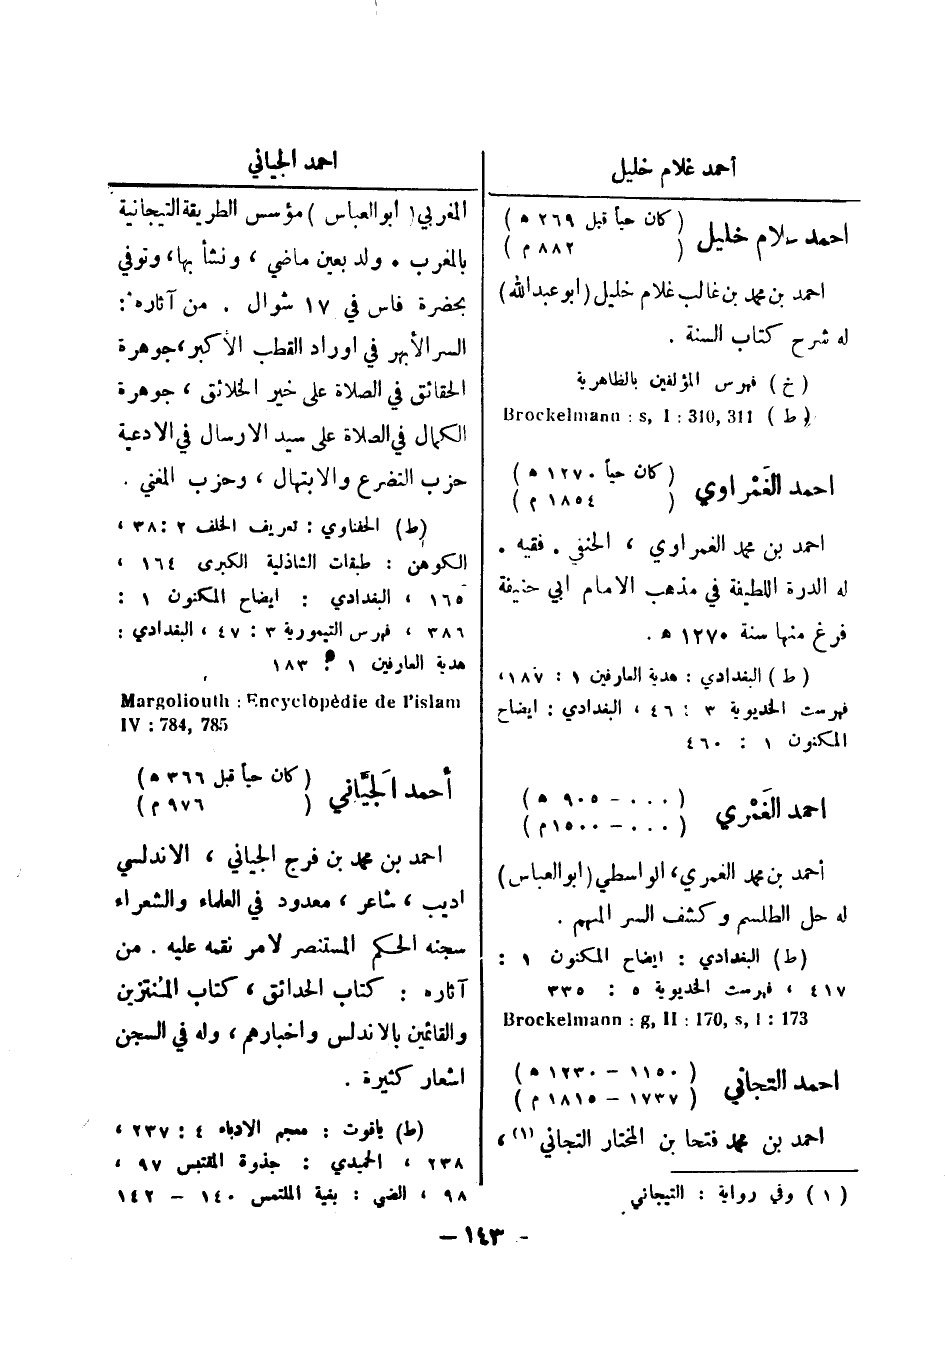 أحمد غلام خليل
احمد غلام خليل
(كان حياً قبل ٢٦٩ ه)
(٨٨٢ م)
احمد بن محمد بن غالب غلام خليل (ابو عبدالله)
له شرح كتاب السنة .
(خ) فهرس المؤلفين بالظاهرية
(ط) Brockelmann : s, I : 310, 311
احمد الغَمْراوي
(كان حياً ١٢٧٠ ه)
(١٨٥٤ م)
احمد بن محمد الغمراوي ، الحنفي . فقيه .
له الدرة اللطيفة في مذهب الامام ابي حنيفة
فرغ منها سنة ١٢٧٠ ه .
(ط) البغدادي : هدية العارفين ١ : ١٨٧،
فهرست الخديوية ٣ : ٤٦ ، البغدادي : ايضاح
المكنون ١ : ٤٦٠
احمد الغَمْري
(٠٠٠ – ٩٠٥ ه)
(٠٠٠ – ١٥٠٠ م)
أحمد بن محمد الغمري، الواسطي (ابو العباس)
له حل الطلسم وكشف السر المبهم .
(ط) البغدادي : ايضاح المكنون ١ :
٤١٧ ، فهرست الخديوية ٥ : ٣٣٥
Brockelmann : g, II : 170, s, I : 173
احمد التجاني
(١١٥٠ – ١٢٣٠ ه)
(١٧٣٧ – ١٨١٥ م)
احمد بن محمد فتحا بن المختار التجاني (١) ،
(١) وفي رواية : التيجاني
احمد الجياني
المغربي (ابو العباس) مؤسس الطريقة التيجانية
بالمغرب . ولد بعين ماضي ، ونشأ بها، وتوفي
بحضرة فاس في ١٧ شوال . من آثاره :
السر الأبهر في اوراد القطب الأكبر، جوهرة
الحقائق في الصلاة على خير الخلائق ، جوهرة
الكمال في الصلاة على سيد الارسال في الادعية
حزب التضرع والابتهال ، وحزب المغني .
(ط) الحفناوي : تعريف الخلف ٢ : ٣٨ ،
الكوهن : طبقات الشاذلية الكبرى ١٦٤ ،
١٦٥ ، البغدادي : ايضاح المكنون ١ :
٣٨٦ ، فهرس التيمورية ٣ : ٤٧ ، البغدادي :
هدية العارفين ١ : ١٨٣
Margoliouth : Encyclopédie de l'islam
IV : 784, 785
أحمد الجَيَّاني
(كان حياً قبل ٣٦٦ ه)
(٩٧٦ م)
احمد بن محمد بن فرج الجياني ، الاندلسي
اديب ، شاعر ، معدود في العلماء والشعراء
سجنه الحكم المستنصر لامر نقمه عليه . من
آثاره : كتاب الحدائق ، كتاب المُنتزين
والقائمين بالاندلس واخبارهم ، وله في السجن
اشعار كثيرة .
(ط) ياقوت : معجم الادباء ٤ : ٢٣٧ ،
٢٣٨ ، الحميدي : جذوة المقتبس ٩٧ ،
٩٨ ، الضبي : بغية الملتمس ١٤٠ – ١٤٢
– ١٤٣ –